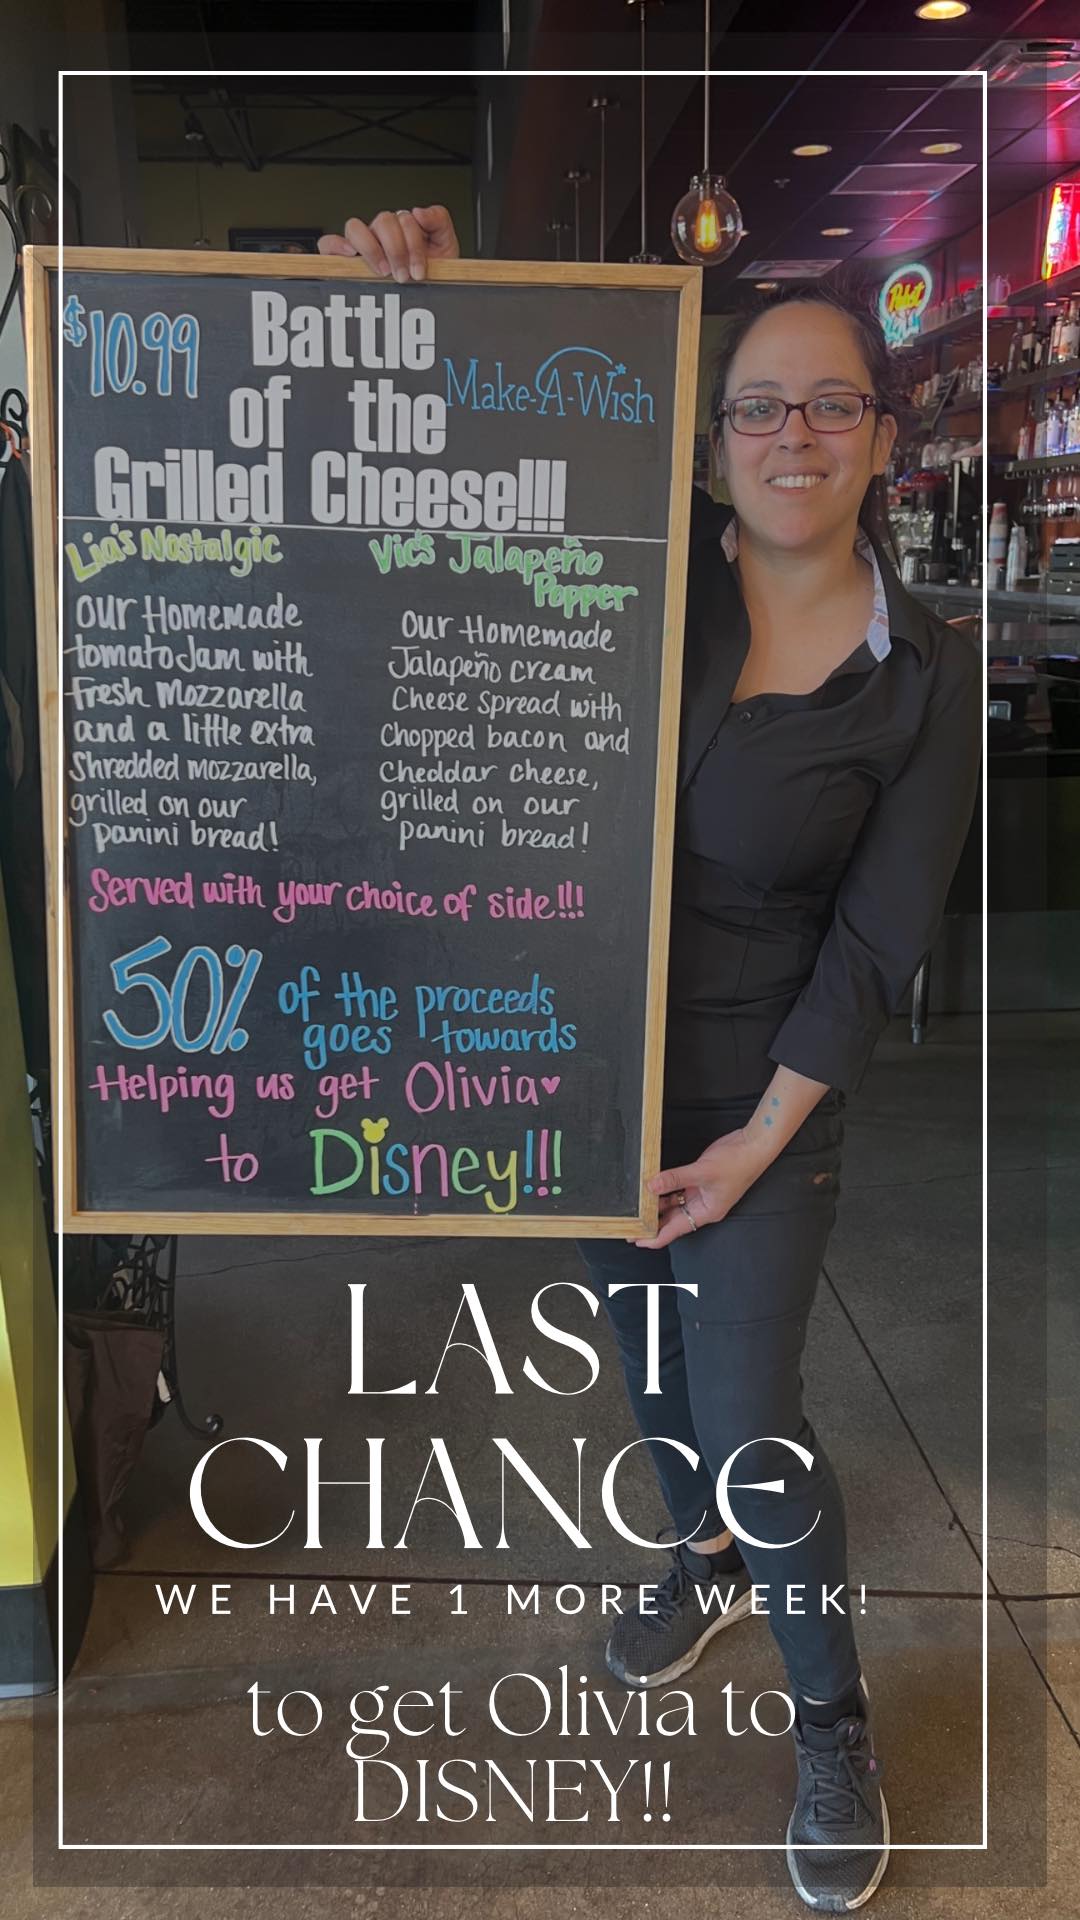 $10.99
Battle
of the
Grilled Cheese!!!
Make-A-Wish
Lia's Nostalgic
our Homemade
tomato Jam with
fresh Mozzarella
and a little extra
Shredded mozzarella,
grilled on our
panini bread!
Vic's Jalapeño
Popper
Our Homemade
Jalapeño cream
Cheese spread with
Chopped bacon and
Cheddar cheese,
grilled on our
panini bread!
Served with your choice of side!!!
50% of the proceeds
goes towards
Helping us get Olivia♥
to Disney!!!
LAST
CHANCE
WE HAVE 1 MORE WEEK!
to get Olivia to
DISNEY!!
Pabst